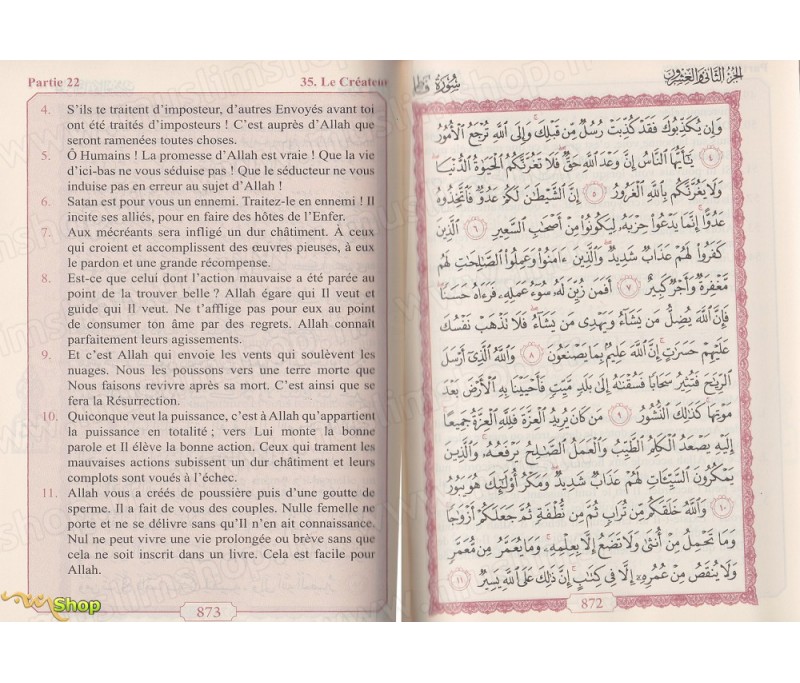 Partie 22
35. Le Créateur
4. S'ils te traitent d'imposteur, d'autres Envoyés avant toi
ont été traités d'imposteurs ! C'est auprès d'Allah que
seront ramenées toutes choses.
5. Ô Humains ! La promesse d'Allah est vraie ! Que la vie
d'ici-bas ne vous séduise pas ! Que le séducteur ne vous
induise pas en erreur au sujet d'Allah !
6. Satan est pour vous un ennemi. Traitez-le en ennemi ! Il
incite ses alliés, pour en faire des hôtes de l'Enfer.
7. Aux mécréants sera infligé un dur châtiment. À ceux
qui croient et accomplissent des œuvres pieuses, à eux
le pardon et une grande récompense.
8. Est-ce que celui dont l'action mauvaise a été parée au
point de la trouver belle ? Allah égare qui Il veut et
guide qui Il veut. Ne t'afflige pas pour eux au point
de consumer ton âme par des regrets. Allah connaît
parfaitement leurs agissements.
9. Et c'est Allah qui envoie les vents qui soulèvent les
nuages. Nous les poussons vers une terre morte que
Nous faisons revivre après sa mort. C'est ainsi que se
fera la Résurrection.
10. Quiconque veut la puissance, c'est à Allah qu'appartient
la puissance en totalité ; vers Lui monte la bonne
parole et Il élève la bonne action. Ceux qui trament les
mauvaises actions subissent un dur châtiment et leurs
complots sont voués à l'échec.
11. Allah vous a créés de poussière puis d'une goutte de
sperme. Il a fait de vous des couples. Nulle femelle ne
porte et ne se délivre sans qu'Il n'en ait connaissance.
Nul ne peut vivre une vie prolongée ou brève sans que
cela ne soit inscrit dans un livre. Cela est facile pour
Allah.
873
Shop
الجزء الثاني والعشرون
سورة فاطر
وَإِن يُكَذِّبُوكَ فَقَدْ كُذِّبَتْ رُسُلٌ مِّن قَبْلِكَ وَإِلَى ٱللَّهِ تُرْجَعُ ٱلْأُمُورُ
٤ يَٰٓأَيُّهَا ٱلنَّاسُ إِنَّ وَعْدَ ٱللَّهِ حَقٌّ فَلَا تَغُرَّنَّكُمُ ٱلْحَيَوٰةُ ٱلدُّنْيَا
وَلَا يَغُرَّنَّكُم بِٱللَّهِ ٱلْغَرُورُ ٥ إِنَّ ٱلشَّيْطَٰنَ لَكُمْ عَدُوٌّ فَٱتَّخِذُوهُ
عَدُوًّا إِنَّمَا يَدْعُوا۟ حِزْبَهُۥ لِيَكُونُوا۟ مِنْ أَصْحَٰبِ ٱلسَّعِيرِ ٦ ٱلَّذِينَ
كَفَرُوا۟ لَهُمْ عَذَابٌ شَدِيدٌ وَٱلَّذِينَ ءَامَنُوا۟ وَعَمِلُوا۟ ٱلصَّٰلِحَٰتِ لَهُم
مَّغْفِرَةٌ وَأَجْرٌ كَبِيرٌ ٧ أَفَمَن زُيِّنَ لَهُۥ سُوٓءُ عَمَلِهِۦ فَرَءَاهُ حَسَنًا
فَإِنَّ ٱللَّهَ يُضِلُّ مَن يَشَآءُ وَيَهْدِى مَن يَشَآءُ فَلَا تَذْهَبْ نَفْسُكَ
عَلَيْهِمْ حَسَرَٰتٍ إِنَّ ٱللَّهَ عَلِيمٌۢ بِمَا يَصْنَعُونَ ٨ وَٱللَّهُ ٱلَّذِىٓ أَرْسَلَ
ٱلرِّيَٰحَ فَتُثِيرُ سَحَابًا فَسُقْنَٰهُ إِلَىٰ بَلَدٍ مَّيِّتٍ فَأَحْيَيْنَا بِهِ ٱلْأَرْضَ بَعْدَ
مَوْتِهَا كَذَٰلِكَ ٱلنُّشُورُ ٩ مَن كَانَ يُرِيدُ ٱلْعِزَّةَ فَلِلَّهِ ٱلْعِزَّةُ جَمِيعًا
إِلَيْهِ يَصْعَدُ ٱلْكَلِمُ ٱلطَّيِّبُ وَٱلْعَمَلُ ٱلصَّٰلِحُ يَرْفَعُهُۥ وَٱلَّذِينَ
يَمْكُرُونَ ٱلسَّيِّـَٔاتِ لَهُمْ عَذَابٌ شَدِيدٌ وَمَكْرُ أُو۟لَٰٓئِكَ هُوَ يَبُورُ
١٠ وَٱللَّهُ خَلَقَكُم مِّن تُرَابٍ ثُمَّ مِن نُّطْفَةٍ ثُمَّ جَعَلَكُمْ أَزْوَٰجًا
وَمَا تَحْمِلُ مِنْ أُنثَىٰ وَلَا تَضَعُ إِلَّا بِعِلْمِهِۦ وَمَا يُعَمَّرُ مِن مُّعَمَّرٍ
وَلَا يُنقَصُ مِنْ عُمُرِهِۦٓ إِلَّا فِى كِتَٰبٍ إِنَّ ذَٰلِكَ عَلَى ٱللَّهِ يَسِيرٌ ١١
872